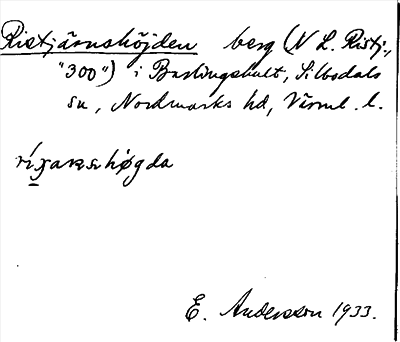 Ristjärnshöjden berg (N L. Ristj.,
"300") i Bastingshult, Silbodals
sn, Nordmarks hd, Värml. l.
høgda
E. Andersson 1933.